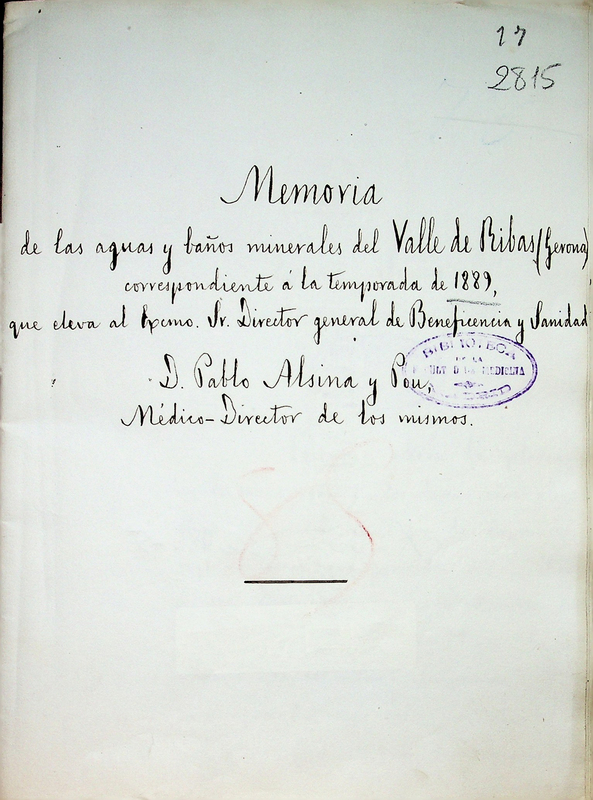 17
2815
Memoria
de las aguas y baños minerales del Valle de Ribas (Gerona)
correspondiente á la temporada de 1889,
que eleva al Excmo. Sr. Director general de Beneficencia y Sanidad
D. Pablo Alsina y Pou,
Médico-Director de los mismos.
BIBLIOTECA
DE LA
MEDICINA